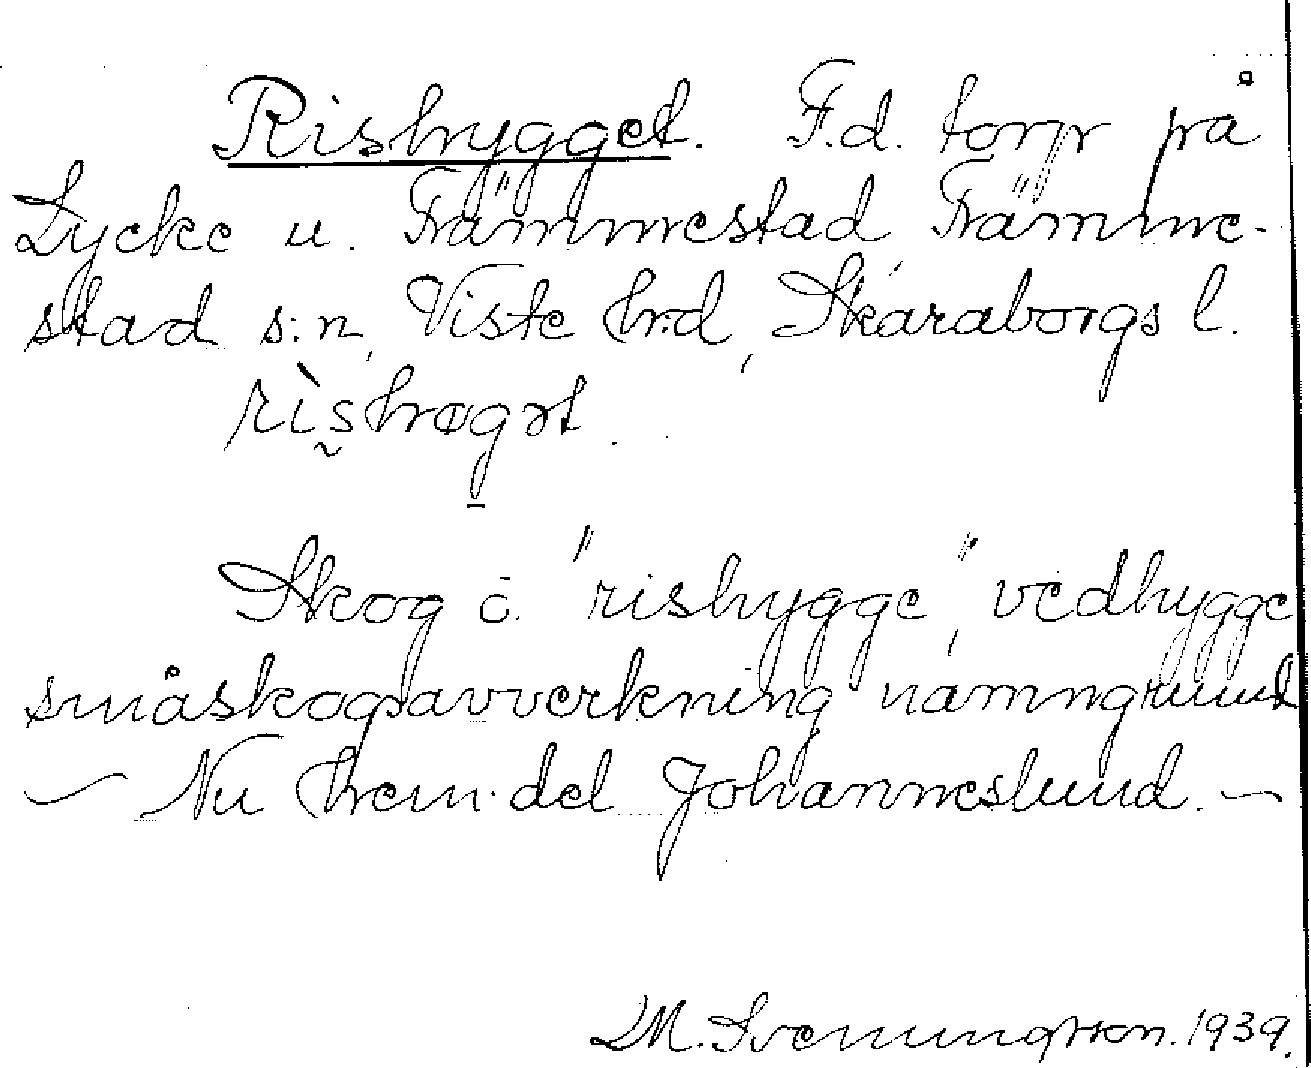 Rishygget. F.d. torp på
Lycke u. Främmestad Främme-
stad s:n, Viste hrd, Skaraborgs l.
rìshøgət.
Skog o. "rishygge", vedhygge
småskogsavverkning namngrund
— Nu hem.del Johanneslund. —
D.M. Svenungsson. 1939.